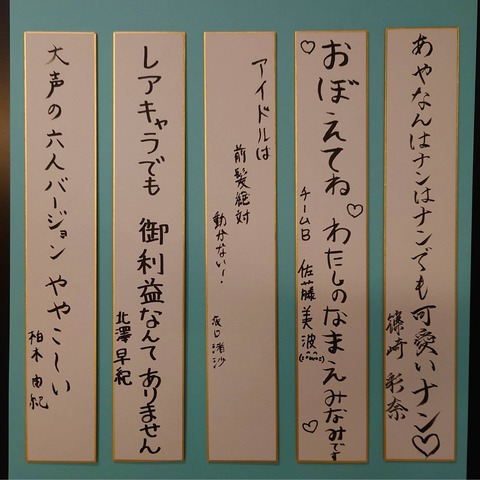 あやなんはナンはナンでも可愛いナン♡
篠崎 彩奈
♡おぼえてね♡わたしのなまえみなみです♡
チームB 佐藤美波
アイドルは
前髪絶対
動かない！
坂口渚沙
レアキャラでも 御利益なんてありません
北澤早紀
大声の六人バージョン ややこしい
柏木由紀